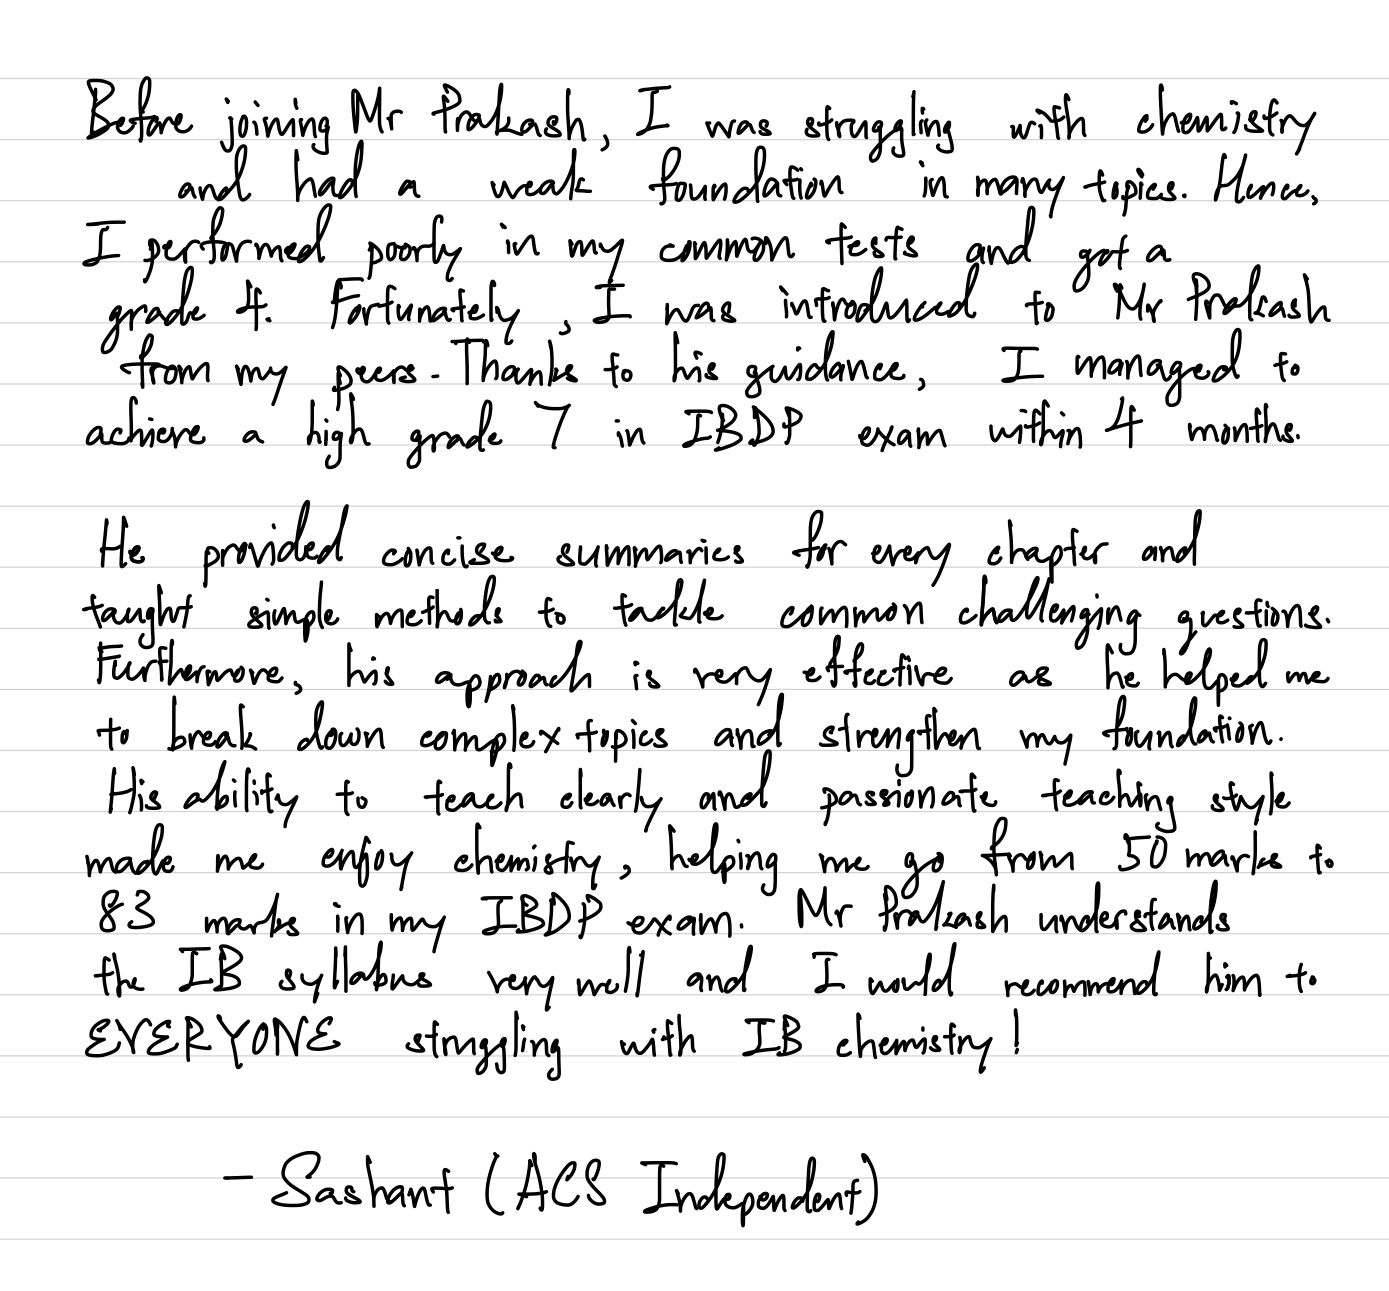 Before joining Mr Prakash, I was struggling with chemistry
and had a weak foundation in many topics. Hence,
I performed poorly in my common tests and got a
grade 4. Fortunately, I was introduced to Mr Prakash
from my peers. Thanks to his guidance, I managed to
achieve a high grade 7 in IBDP exam within 4 months.
He provided concise summaries for every chapter and
taught simple methods to tackle common challenging questions.
Furthermore, his approach is very effective as he helped me
to break down complex topics and strengthen my foundation.
His ability to teach clearly and passionate teaching style
made me enjoy chemistry, helping me go from 50 marks to
83 marks in my IBDP exam. Mr Prakash understands
the IB syllabus very well and I would recommend him to
EVERYONE struggling with IB chemistry!
- Sashant (ACS Independent)